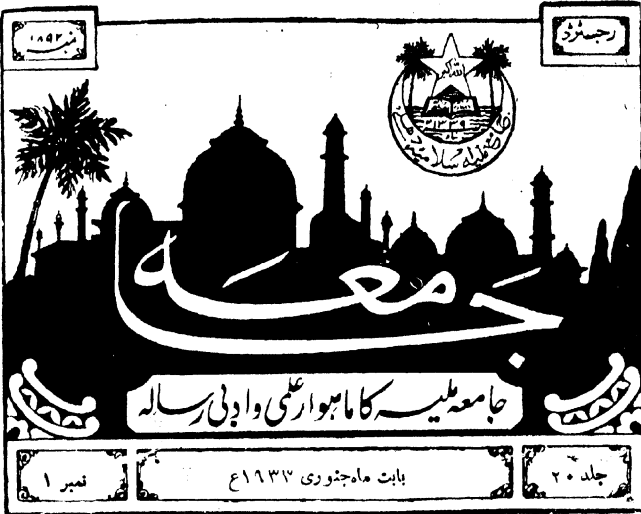 رجسٹرڈ
نمبر ۱۸۹۲
اللہ اکبر
۱۳۳۹
جامعہ ملیہ اسلامیہ دہلی
جامعہ
جامعہ ملیہ کا ماہوار علمی و ادبی رسالہ
جلد ۲۰
بابت ماہ جنوری ۱۹۳۳ع
نمبر ۱